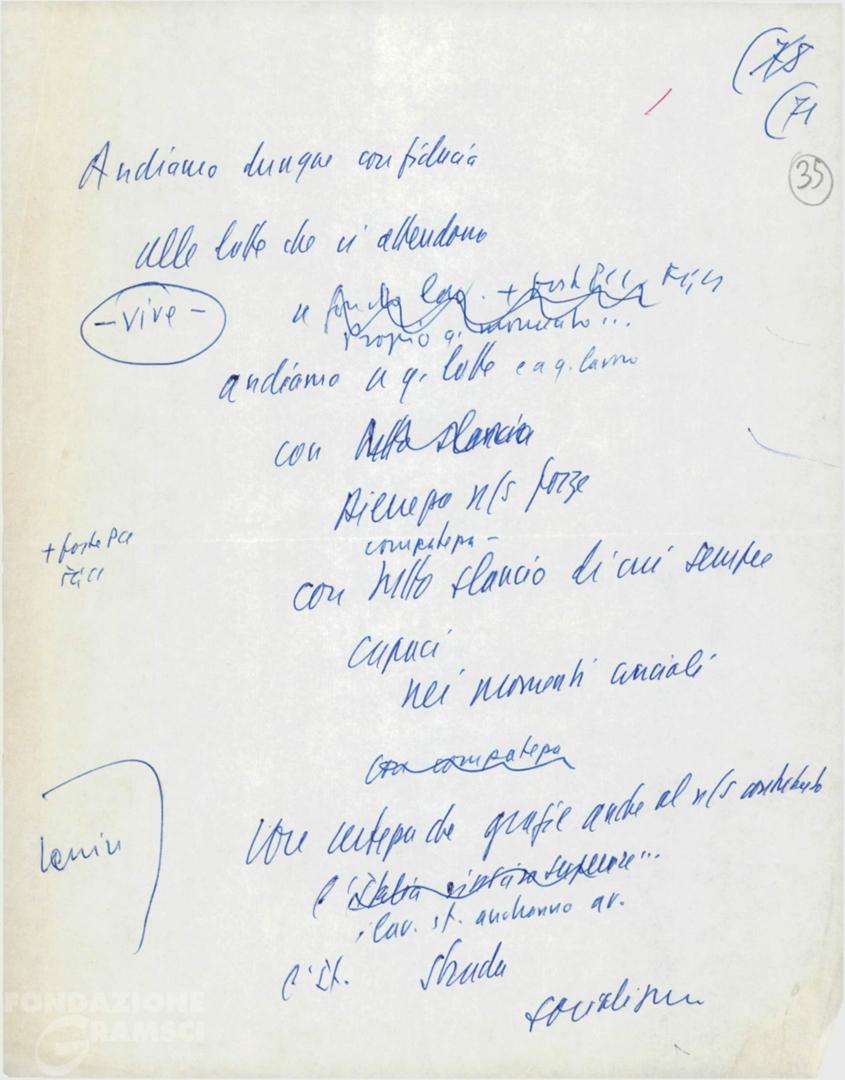 (78
(71
35
Andiamo dunque con fiducia
alle lotte che ci attendono
- vive -
a + forte PCI, FGCI
proprio q. momento...
andiamo a q. lotte e a q. lavoro
con tutto slancio
Pienezza n/s forze
+ forte PCI
FGCI
compattezza -
con tutto slancio di cui sempre
capaci
nei momenti cruciali
con compattezza
Lenin
con certezza che grazie anche al n/s contributo
l'Italia superare...
i lav. it. andranno av.
l'It. strada
socialismo
FONDAZIONE
GRAMSCI